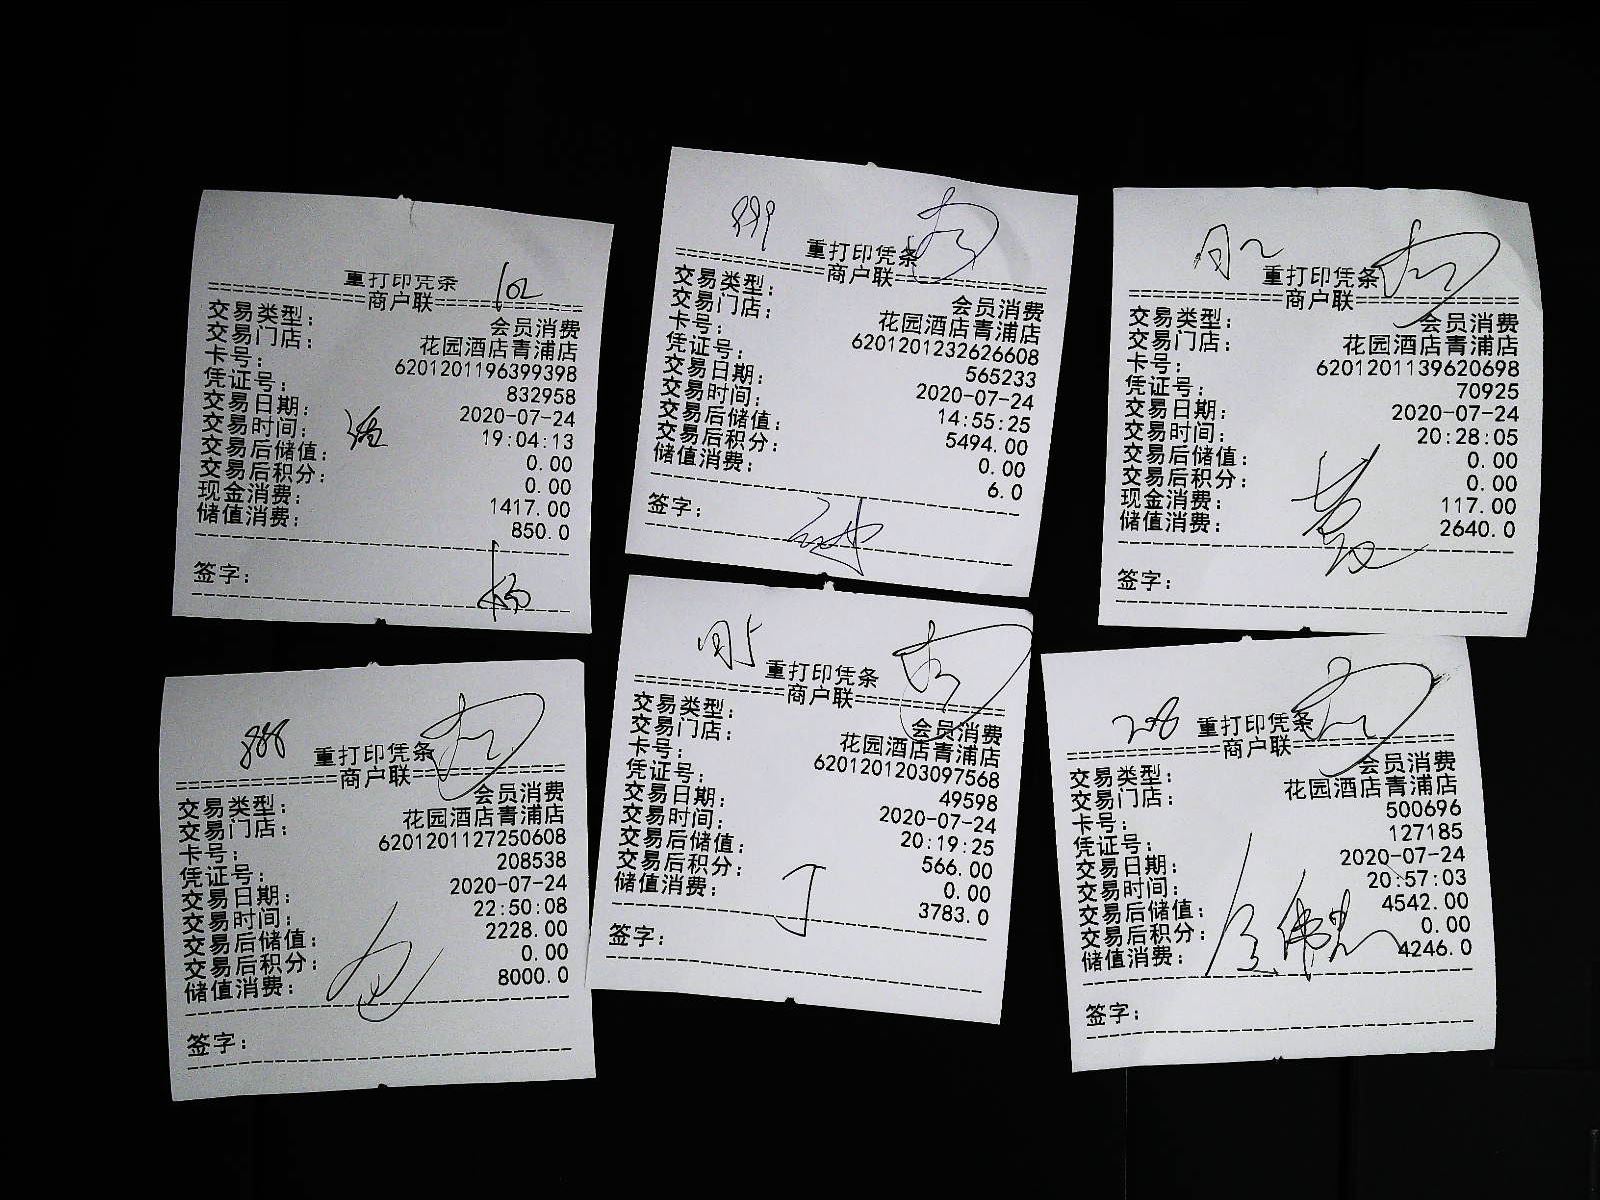 重打印凭条
102
商户联
交易类型: 会员消费
交易门店: 花园酒店青浦店
卡号: 6201201196399398
凭证号: 832958
交易日期: 2020-07-24
交易时间: 19:04:13
交易后储值: 0.00
交易后积分: 0.00
现金消费: 1417.00
储值消费: 850.0
签字:
899
重打印凭条
商户联
交易类型: 会员消费
交易门店: 花园酒店青浦店
卡号: 6201201232626608
凭证号: 565233
交易日期: 2020-07-24
交易时间: 14:55:25
交易后储值: 5494.00
交易后积分: 0.00
储值消费: 6.0
签字:
重打印凭条
商户联
交易类型: 会员消费
交易门店: 花园酒店青浦店
卡号: 6201201139620698
凭证号: 70925
交易日期: 2020-07-24
交易时间: 20:28:05
交易后储值: 0.00
交易后积分: 0.00
现金消费: 117.00
储值消费: 2640.0
签字:
888
重打印凭条
商户联
交易类型: 会员消费
交易门店: 花园酒店青浦店
卡号: 6201201127250608
凭证号: 208538
交易日期: 2020-07-24
交易时间: 22:50:08
交易后储值: 2228.00
交易后积分: 0.00
储值消费: 8000.0
签字:
重打印凭条
商户联
交易类型: 会员消费
交易门店: 花园酒店青浦店
卡号: 6201201203097568
凭证号: 49598
交易日期: 2020-07-24
交易时间: 20:19:25
交易后储值: 566.00
交易后积分: 0.00
储值消费: 3783.0
丁
签字:
208
重打印凭条
商户联
交易类型: 会员消费
交易门店: 花园酒店青浦店
卡号: 500696
凭证号: 127185
交易日期: 2020-07-24
交易时间: 20:57:03
交易后储值: 4542.00
交易后积分: 0.00
储值消费: 4246.0
签字: